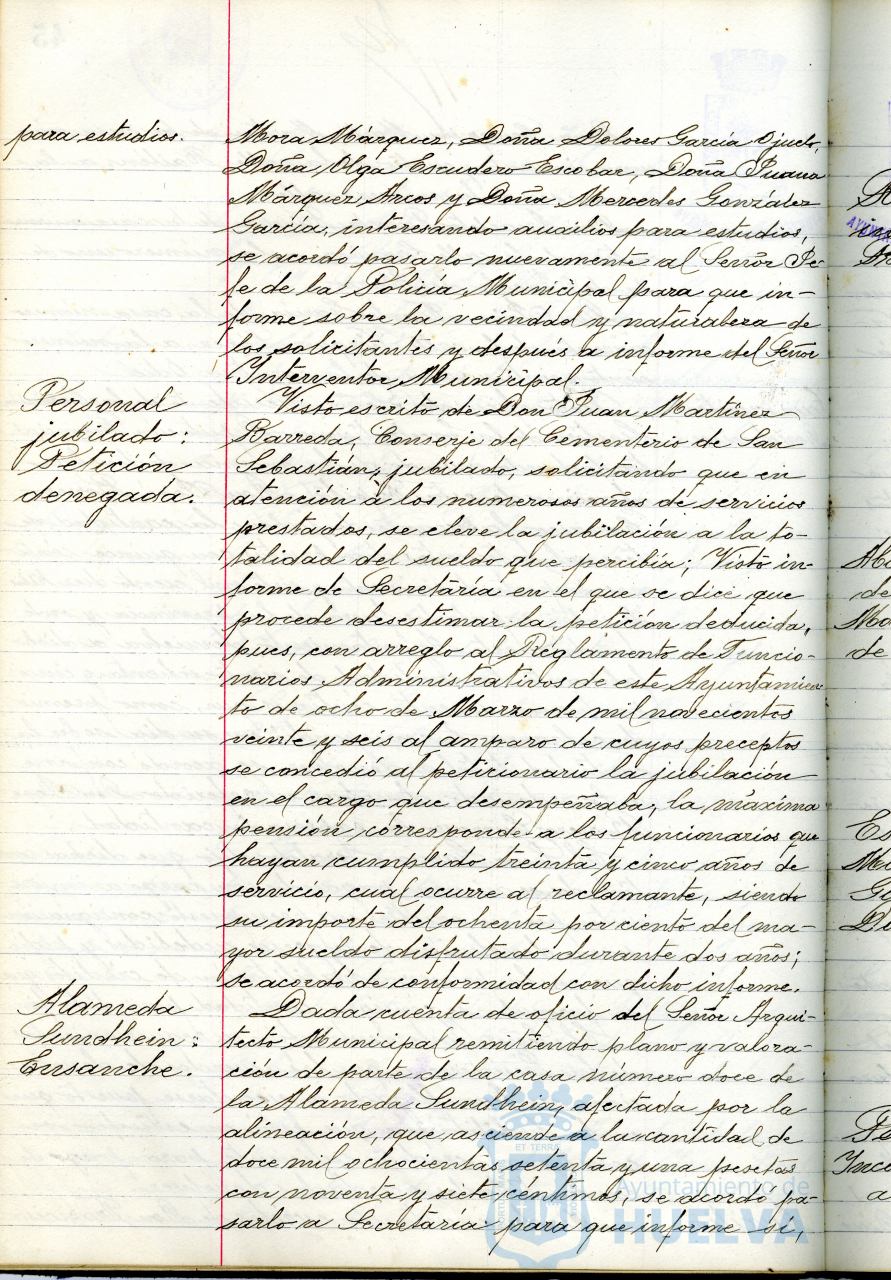 para estudios.
Mora Márquez, Doña Dolores García Ojuelo,
Doña Olga Escudero Escobar, Doña Juana
Márquez Arcos y Doña Mercedes González
García, interesando auxilios para estudios,
se acordó pasarlo nuevamente al Señor Je-
fe de la Policía Municipal para que in-
forme sobre la vecindad y naturaleza de
los solicitantes y después a informe del Señor
Interventor Municipal.
Personal
jubilado:
Petición
denegada.
Visto escrito de Don Juan Martínez
Barreda, Conserje del Cementerio de San
Sebastián, jubilado, solicitando que en
atención à los numerosos años de servicios
prestados, se eleve la jubilación a la to-
talidad del sueldo que percibía; Visto in-
forme de Secretaría en el que se dice que
procede desestimar la petición deducida,
pues, con arreglo al Reglamento de Funcio-
narios Administrativos de este Ayuntamien-
to de ocho de Marzo de mil novecientos
veinte y seis al amparo de cuyos preceptos
se concedió al peticionario la jubilación
en el cargo que desempeñaba, la máxima
pensión corresponde a los funcionarios que
hayan cumplido treinta y cinco años de
servicio, cual ocurre al reclamante, siendo
su importe del ochenta por ciento del ma-
yor sueldo disfrutado durante dos años;
se acordó de conformidad con dicho informe.
Alameda
Sundhein:
Ensanche.
Dada cuenta de oficio del Señor Arqui-
tecto Municipal remitiendo plano y valora-
ción de parte de la casa número doce de
la Alameda Sundhein, afectada por la
alineación, que asciende a la cantidad de
doce mil ochocientas setenta y una pesetas
con noventa y siete céntimos, se acordó pa-
sarlo a Secretaría para que informe si,
Ayuntamiento de
HUELVA